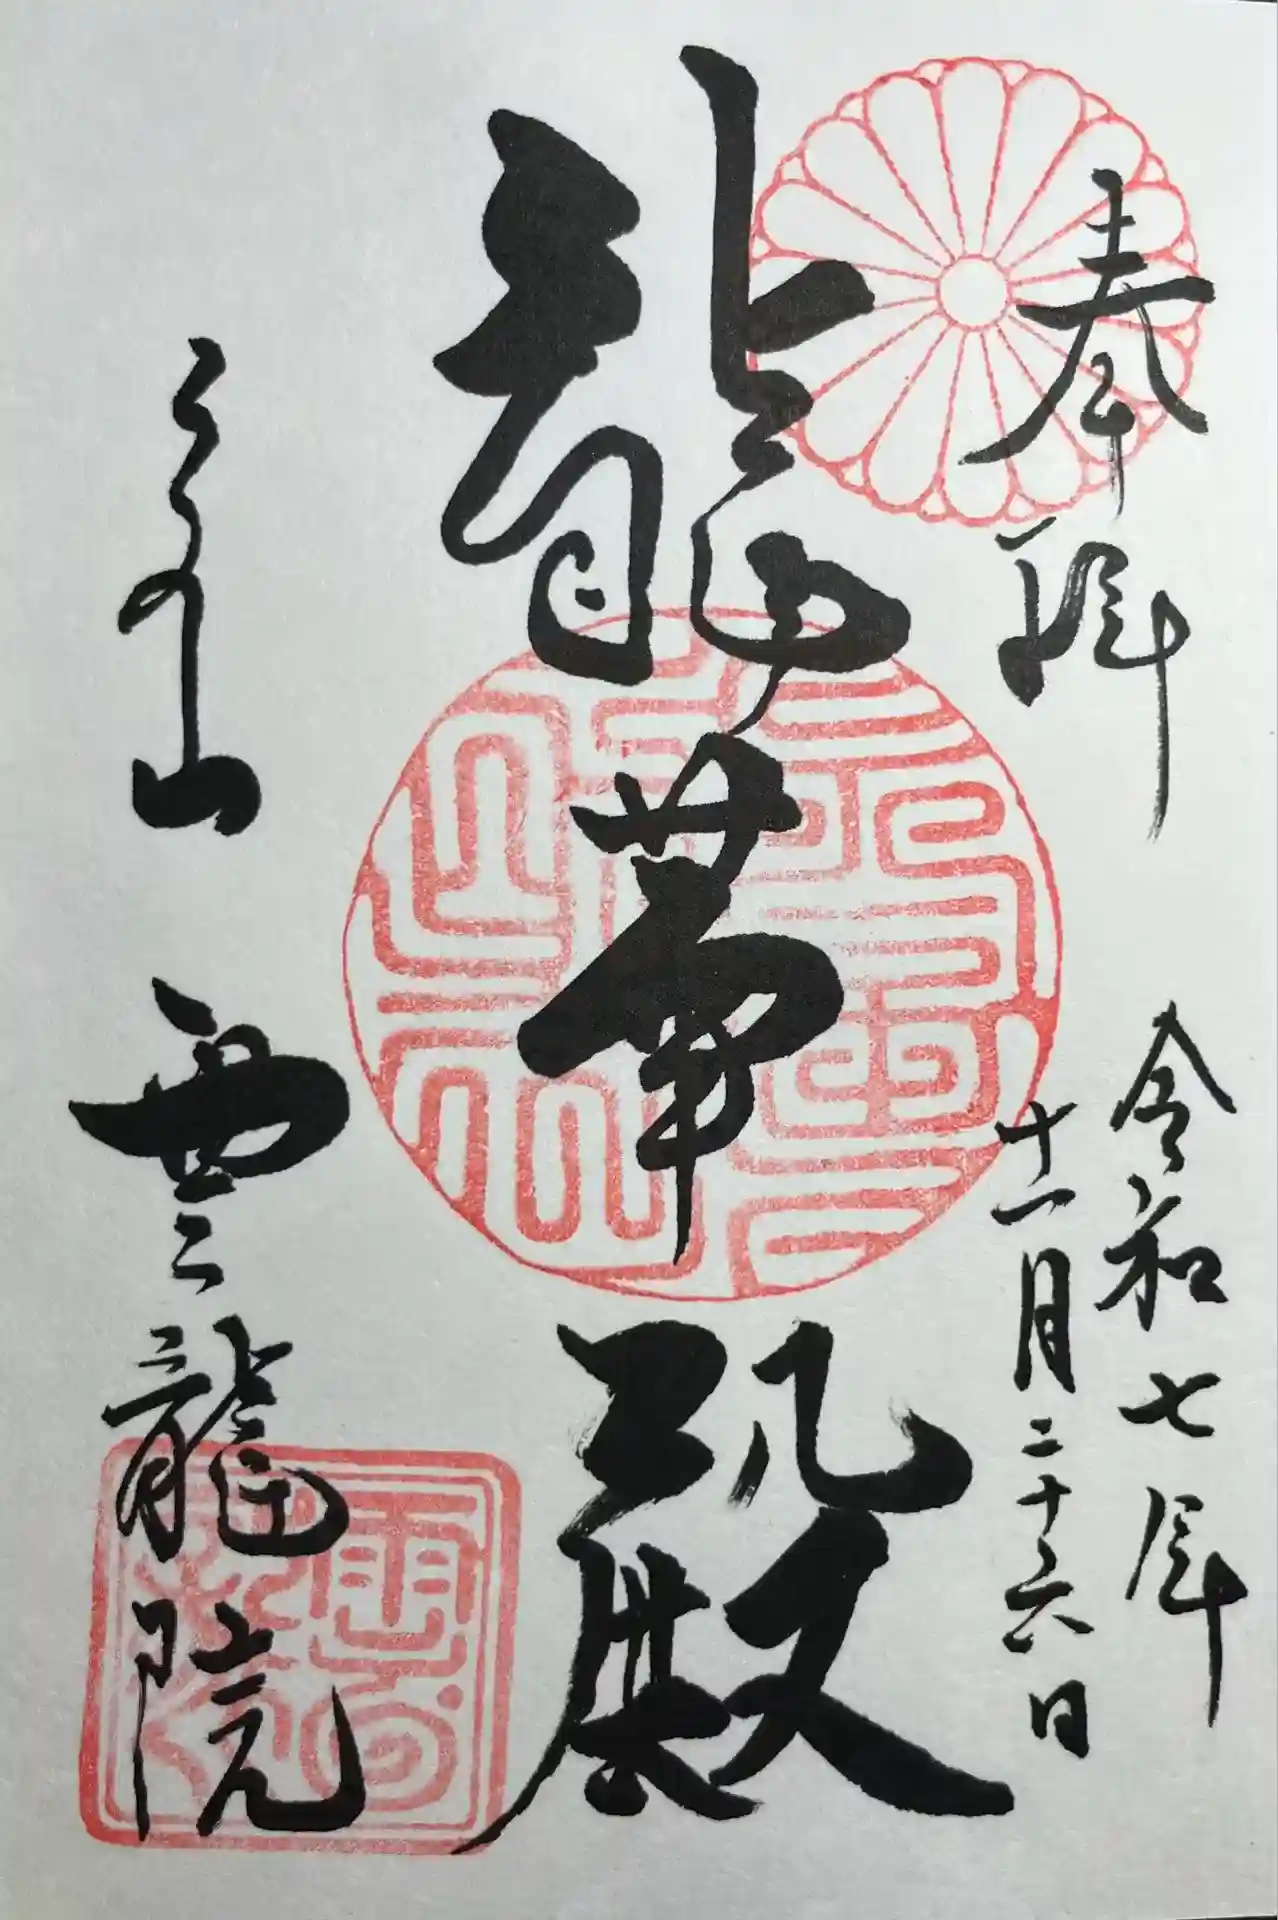 奉拝
令和七年
十一月二十六日
龍華殿
泉山 雲龍院